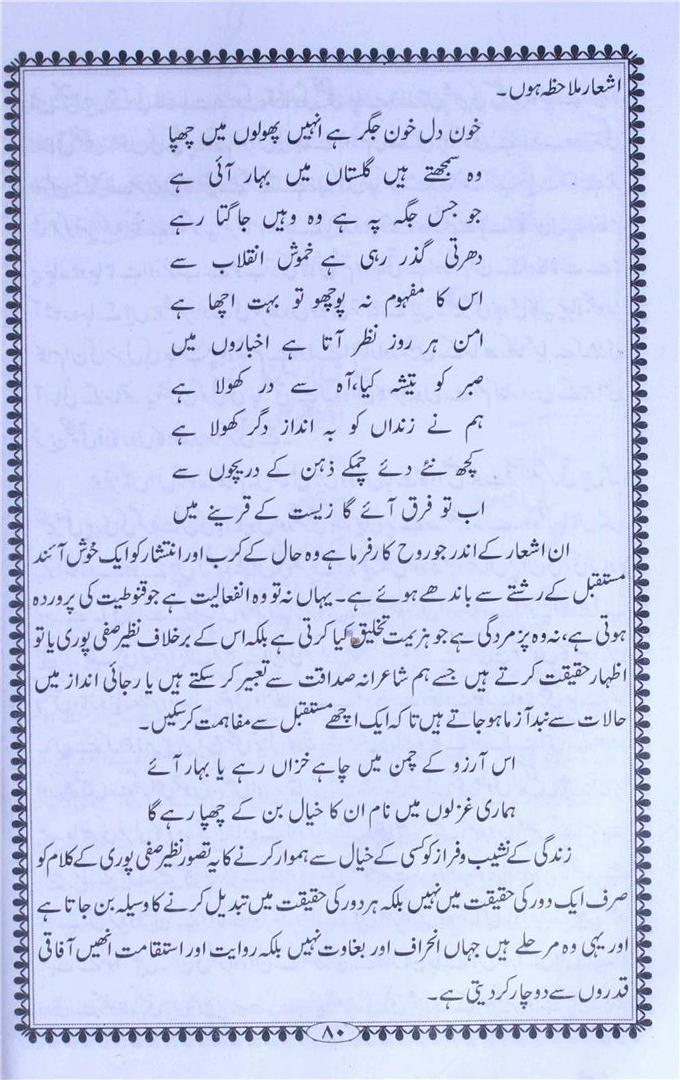 اشعار ملاحظہ ہوں۔
خون دل خون جگر ہے انہیں پھولوں میں چھپا
وہ سمجھتے ہیں گلستاں میں بہار آئی ہے
جو جس جگہ پر ہے وہ وہیں جاگتا رہے
دھرتی گذر رہی ہے خموش انقلاب سے
اس کا مفہوم نہ پوچھو تو بہت اچھا ہے
امن ہر روز نظر آتا ہے اخباروں میں
صبر کو تیشہ کیا،آہ سے در کھولا ہے
ہم نے زنداں کو بہ انداز دگر کھولا ہے
کچھ نئے دئے چمکے ذہن کے دریچوں سے
اب تو فرق آئے گا زیست کے قرینے میں
ان اشعار کے اندر جو روح کارفرما ہے وہ حال کے کرب اور انتشار کو ایک خوش آئند
مستقبل کے رشتے سے باندھے ہوئے ہے۔ یہاں نہ تو وہ انفعالیت ہے جو قنوطیت کی پروردہ
ہوتی ہے، نہ وہ پژمردگی ہے جو ہزیمت تخلیق کیا کرتی ہے بلکہ اس کے برخلاف نظیر صفی پوری یا تو
اظہار حقیقت کرتے ہیں جسے ہم شاعرانہ صداقت سے تعبیر کر سکتے ہیں یا رجائی انداز میں
حالات سے نبدآزما ہو جاتے ہیں تا کہ ایک اچھے مستقبل سے مفاہمت کر سکیں۔
اس آرزو کے چمن میں چاہے خزاں رہے یا بہار آئے
ہماری غزلوں میں نام ان کا خیال بن کے چھپا رہے گا
زندگی کے نشیب و فراز کو کسی کے خیال سے ہموار کرنے کا یہ تصور نظیر صفی پوری کے کلام کو
صرف ایک دور کی حقیقت میں نہیں بلکہ ہر دور کی حقیقت میں تبدیل کرنے کا وسیلہ بن جاتا ہے
اور یہی وہ مرحلے ہیں جہاں انحراف اور بغاوت نہیں بلکہ روایت اور استقامت انھیں آفاقی
قدروں سے دوچار کر دیتی ہے۔
۸۰